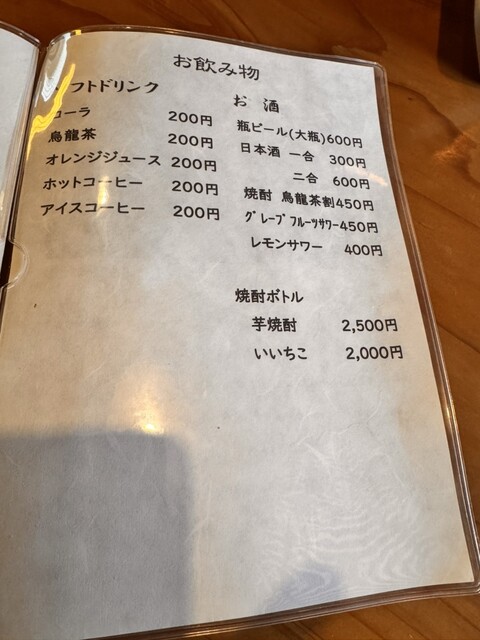 お飲み物
フトドリンク
コーラ 200円
烏龍茶 200円
オレンジジュース 200円
ホットコーヒー 200円
アイスコーヒー 200円
お酒
瓶ビール(大瓶)600円
日本酒 一合 300円
二合 600円
焼酎 烏龍茶割450円
グレープフルーツサワー450円
レモンサワー 400円
焼酎ボトル
芋焼酎 2,500円
いいちこ 2,000円